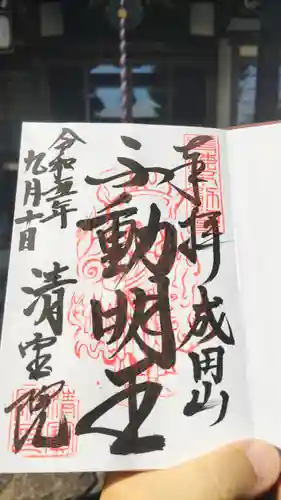 奉拝 成田山
不動明王
令和五年
九月十日
清宝院